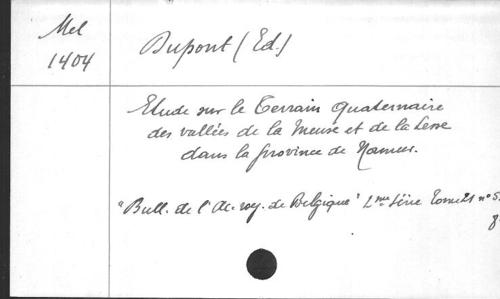 Mel
1404
Dupont (Ed.)
Etude sur le Terrain Quaternaire
des vallées de la Meuse et de la Lesse
dans la province de Namur.
"Bull. de l'Ac. roy. de Belgique" 2me Série Tome 21 n° 5.
8